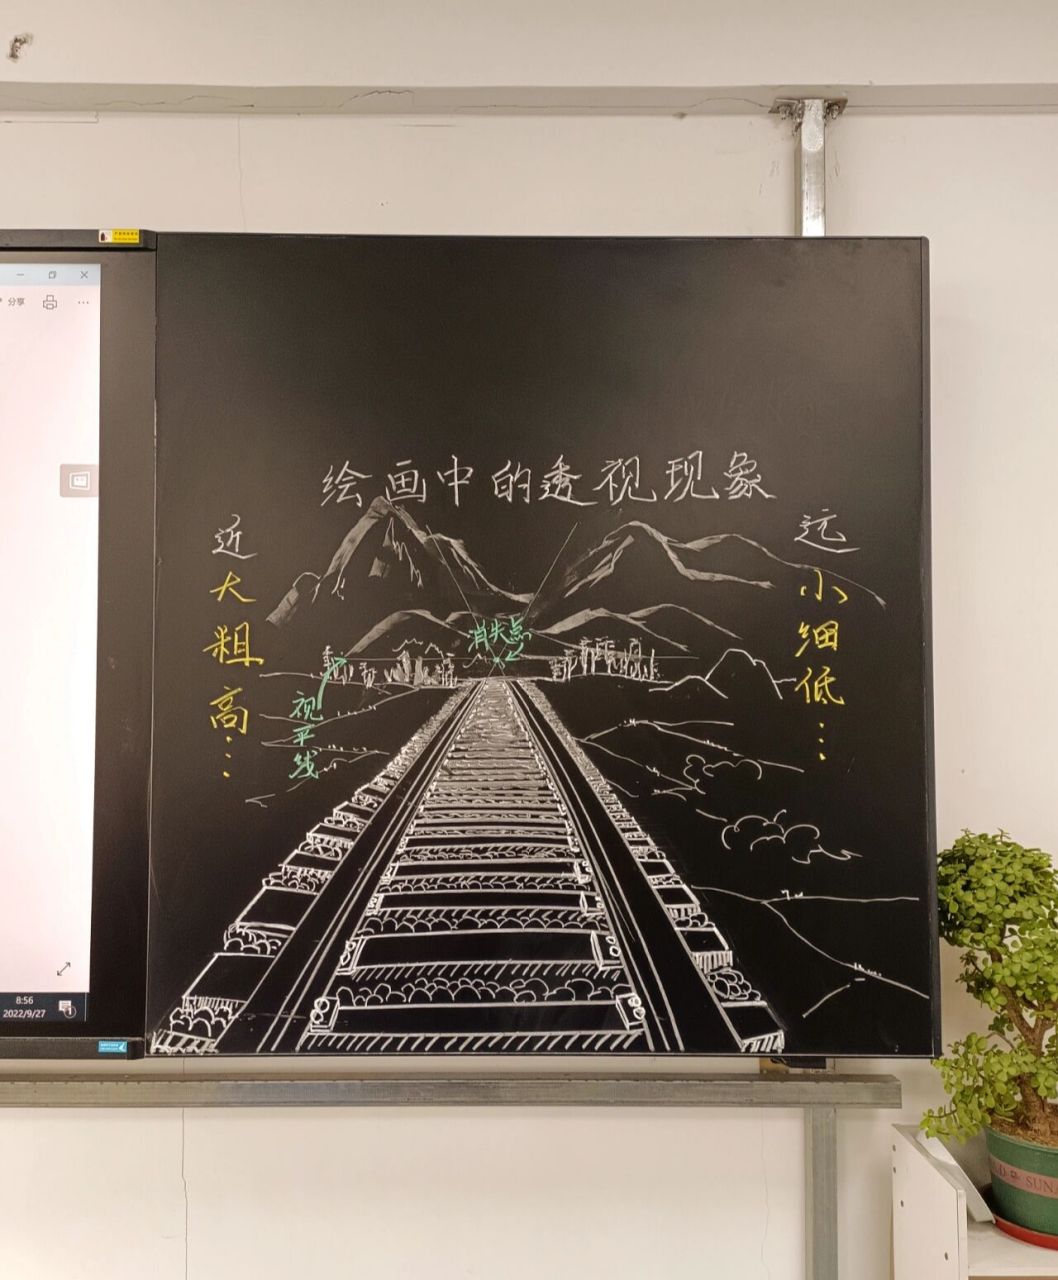 分享
绘画中的透视现象
近
大
粗
高…
远
小
细
低…
消失点
视平线
8:56
2022/9/27
SUNA